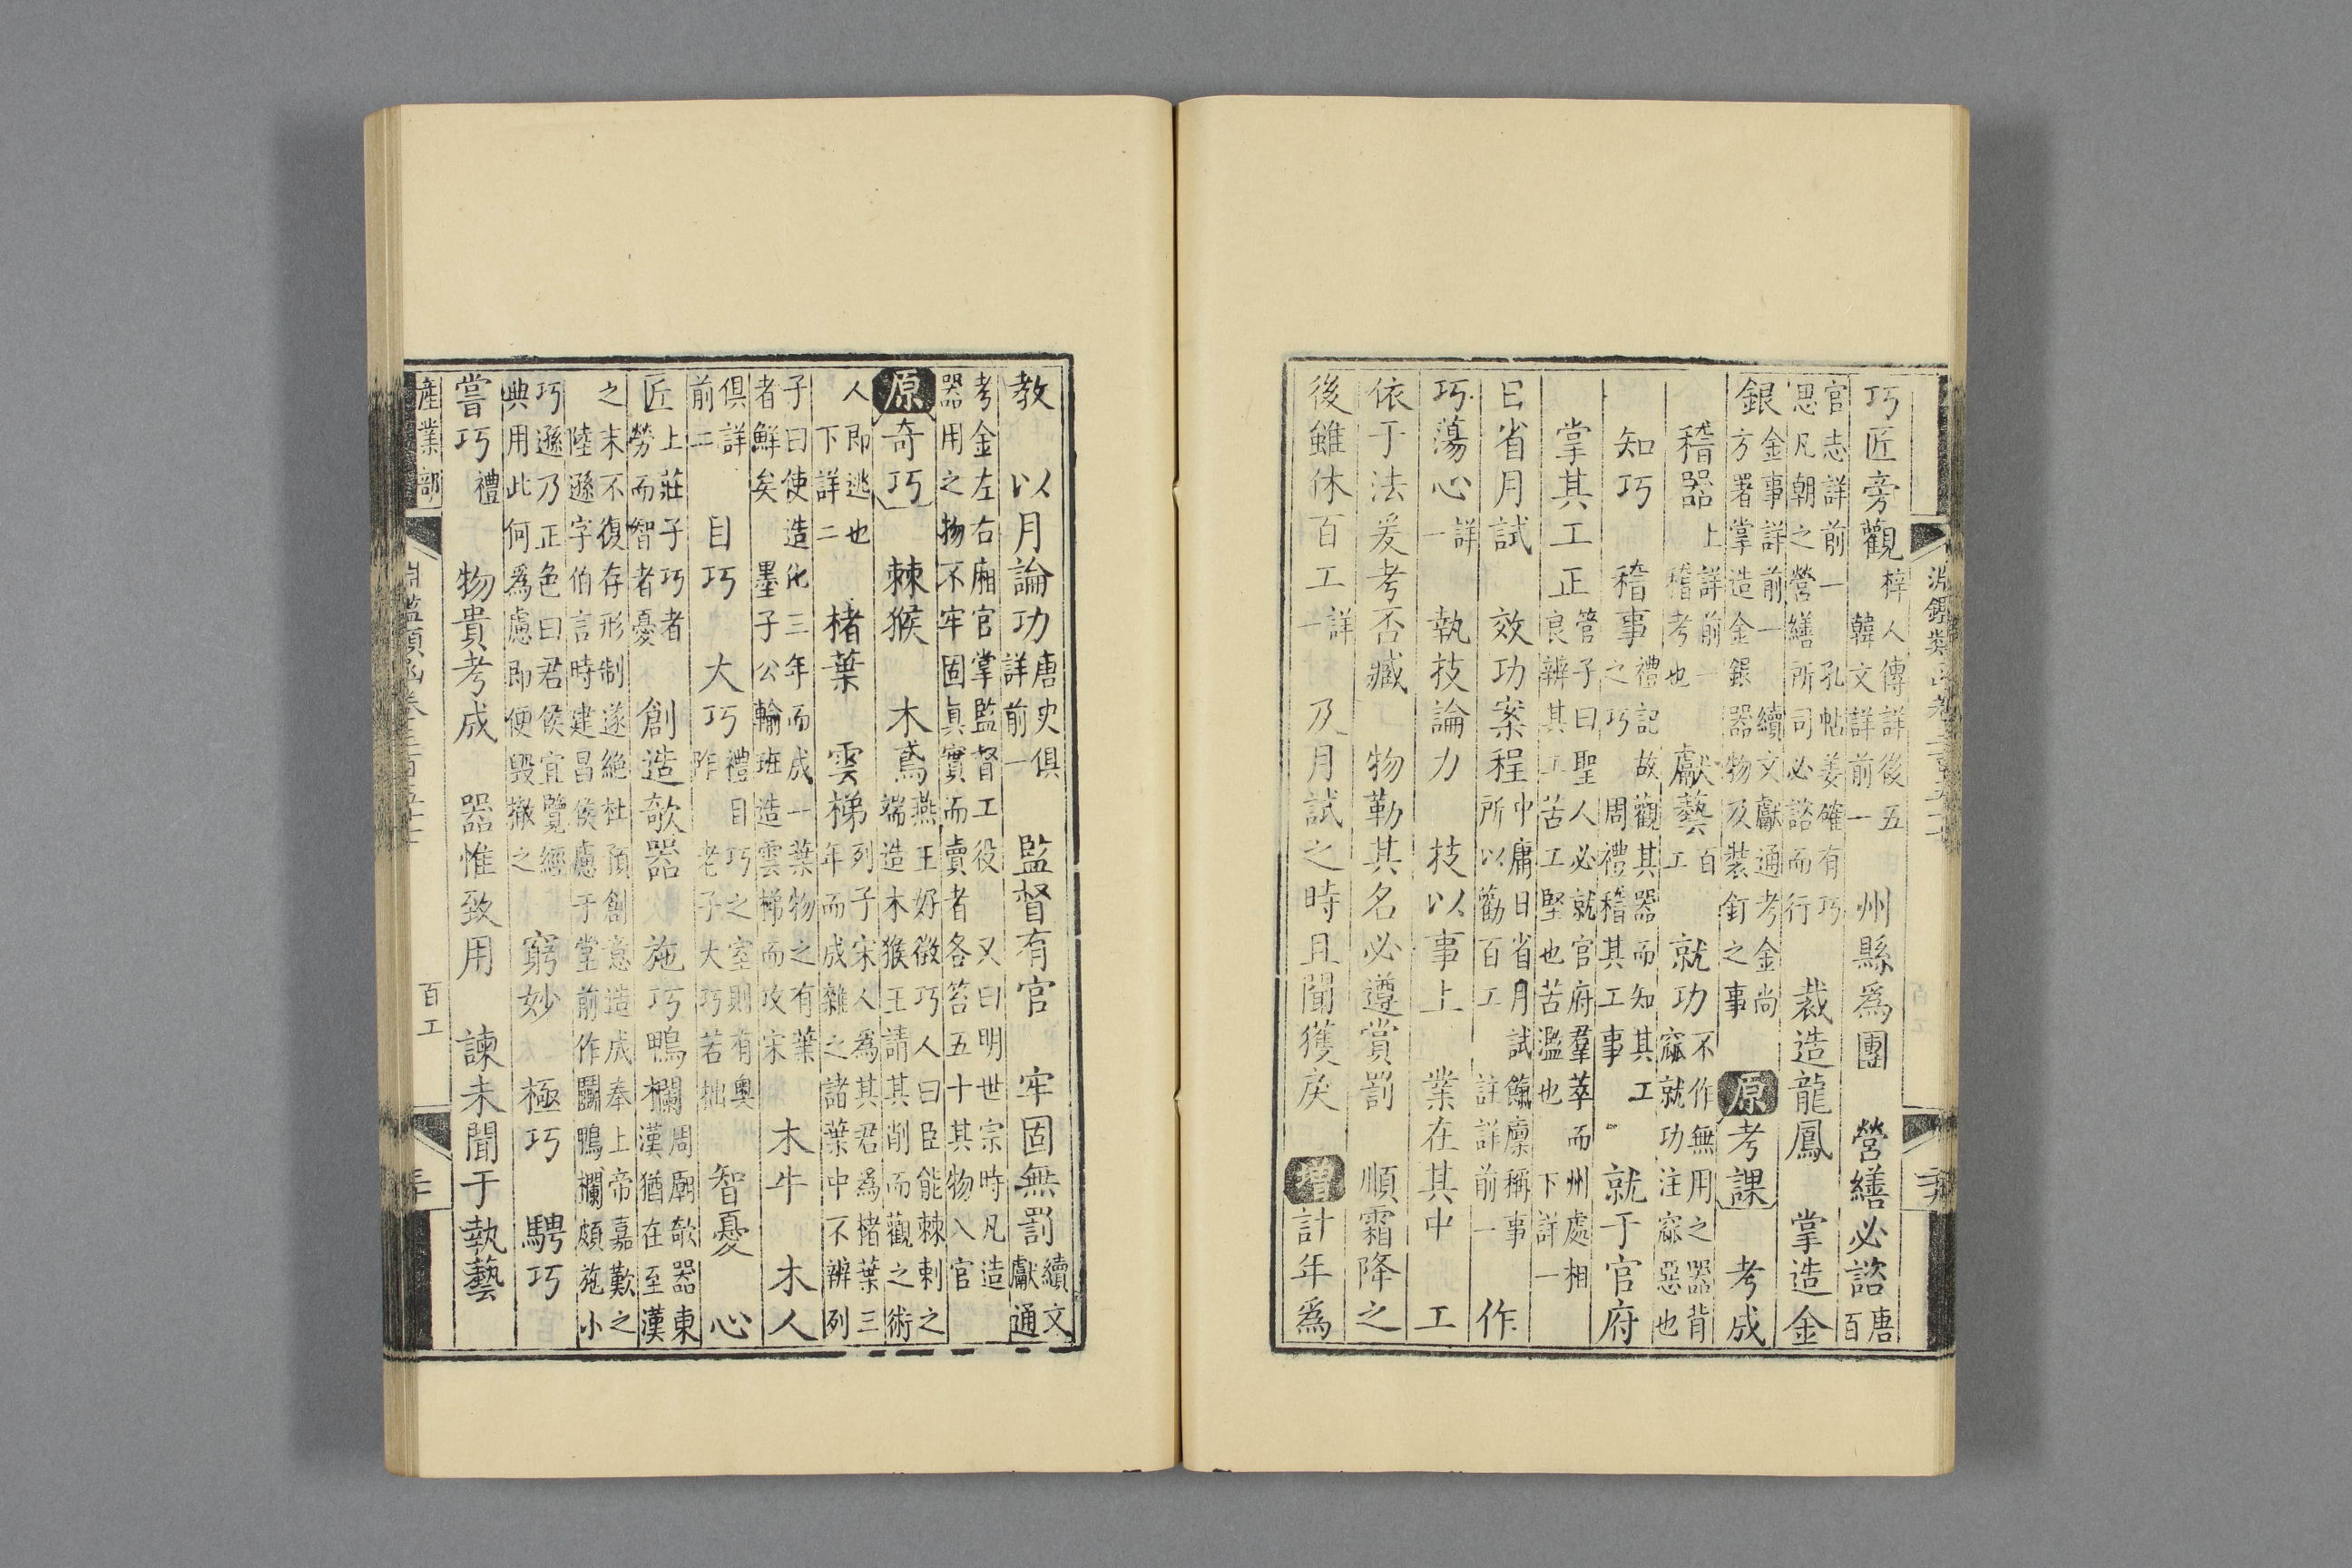 巧匠旁觀 梓人傳詳後五 韓文詳前一 州縣爲團 營繕必諮 唐百
官志詳前一 孔帖姜確有巧 思凡朝之營繕所司必諮而行 裁造龍鳳 掌造金
銀 金事詳前一 續文獻通考金尚 方署掌造金銀器物及裝釘之事 原 考課 考成
稽器 上詳前一 稽考也 獻藝 百工 就功 不作無用之器背 窳就功注窳惡也
知巧 稽事 禮記故觀其器而知其工 之巧 周禮稽其工事 就于官府
掌其工正 管子曰聖人必就官府羣萃而州處相 良辨其工苦工堅也苦濫也 下詳一
日省月試 效功案程 中庸日省月試餼廩稱事 所以勸百工 註詳前一 作
巧蕩心 詳一 執技論力 技以事上 業在其中 工
依于法爰考否臧 物勒其名必遵賞罰 順霜降之
後雖休百工 詳一 及月試之時且聞獲戾 增 計年爲
教 以月論功 唐史俱詳前一 監督有官 牢固無罰 續文獻通
考金左右廂官掌監督工役 又曰明世宗時凡造 器用之物不牢固真實而賣者各笞五十其物入官
原 奇巧 棘猴 木鳶 燕王好微巧人曰臣能棘刺之 端造木猴王請其削而觀之術
人即逃也 下詳二 楮葉 雲梯 列子宋人爲其君爲楮葉三 年而成雜之諸葉中不辨列
子曰使造化三年而成一葉物之有葉 者鮮矣 墨子公輸班造雲梯而攻宋 木牛 木人
俱詳前二 目巧 大巧 禮目巧之室則有奧 阼 老子大巧若拙 智憂 心
匠 上莊子巧者 勞而智者憂 創造欹器 施巧鴨欄 周廟欹器東 漢猶在至漢
之末不復存形制遂絕杜預創意造成奉上帝嘉歎之 陸遜字伯言時建昌侯慮于堂前作鬭鴨欄頗施小
巧遜乃正色曰君侯宜覽經 典用此何爲慮即便毀撤之 窮妙 極巧 騁巧
嘗巧 禮 物貴考成 器惟致用 諫未聞于執藝
產業部 百工